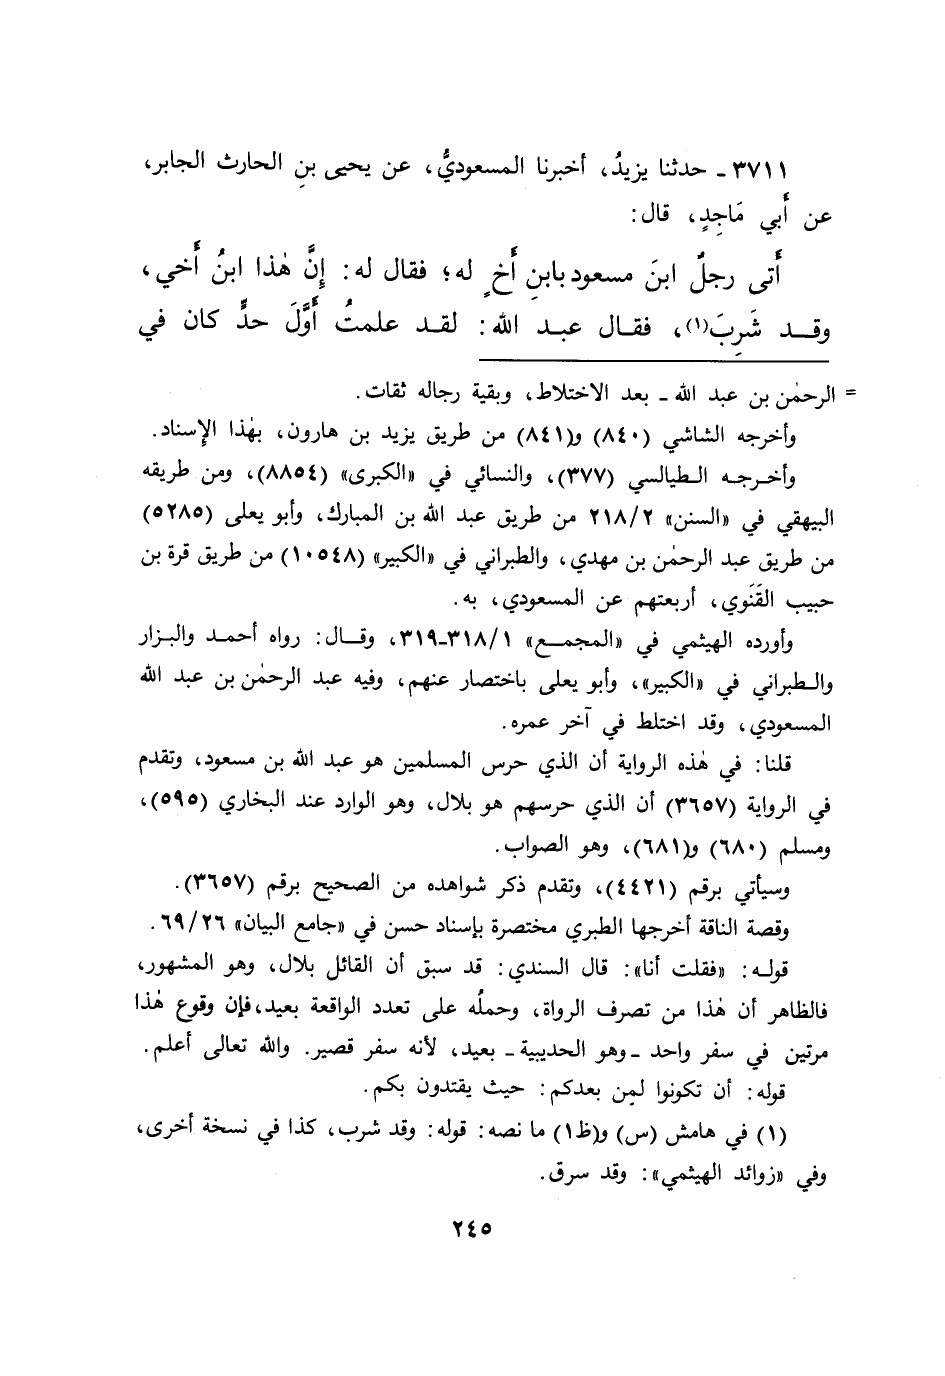 ٣٧١١ ـ حدثنا يزيدُ، أخبرنا المسعوديُّ، عن يحيى بنِ الحارث الجابر،
عن أَبي مَاجِدٍ، قال:
أَتى رجلٌ ابنَ مسعود بابنِ أَخٍ له؛ فقال له: إِنَّ هٰذا ابنُ أَخي،
وقـد شَرِبَ(١)، فقـال عبـد الله: لقـد علمتُ أَوَّلَ حدٍّ كان في
= الرحمٰن بن عبد الله ـ بعد الاختلاط، وبقية رجاله ثقات.
وأخرجه الشاشي (٨٤٠) و(٨٤١) من طريق يزيد بن هارون، بهٰذا الإسناد.
وأخـرجـه الطيالسي (٣٧٧)، والنسائي في «الكبرى» (٨٨٥٤)، ومن طريقه
البيهقي في «السنن» ٢١٨/٢ من طريق عبد الله بن المبارك، وأبو يعلى (٥٢٨٥)
من طريق عبد الرحمٰن بن مهدي، والطبراني في «الكبير» (١٠٥٤٨) من طريق قرة بن
حبيب القَنَوي، أربعتهم عن المسعودي، به.
وأورده الهيثمي في «المجمـع» ٣١٨/١-٣١٩، وقـال: رواه أحمـد والبـزار
والـطبراني في «الكبير»، وأبو يعلى باختصار عنهم، وفيه عبد الرحمٰن بن عبد الله
المسعودي، وقد اختلط في آخر عمره.
قلنا: في هٰذه الرواية أن الذي حرس المسلمين هو عبد الله بن مسعود، وتقدم
في الرواية (٣٦٥٧) أن الذي حرسهم هو بلال، وهو الوارد عند البخاري (٥٩٥)،
ومسلم (٦٨٠) و(٦٨١)، وهو الصواب.
وسيأتي برقم (٤٤٢١)، وتقدم ذكر شواهده من الصحيح برقم (٣٦٥٧).
وقصة الناقة أخرجها الطبري مختصرة بإسناد حسن في «جامع البيان» ٦٩/٢٦.
قولـه: «فقلت أنا»: قال السندي: قد سبق أن القائل بلال، وهو المشهور،
فالظاهر أن هٰذا من تصرف الرواة، وحملُه على تعدد الواقعة بعيد، فإن وقوع هٰذا
مرتين في سفر واحد ـ وهو الحديبية ـ بعيد، لأنه سفر قصير. والله تعالى أعلم.
قوله: أن تكونوا لمن بعدكم: حيث يقتدون بكم.
(١) في هامش (س) و(ظ١) ما نصه: قوله: وقد شرب، كذا في نسخة أخرى،
وفي «زوائد الهيثمي»: وقد سرق.
٢٤٥